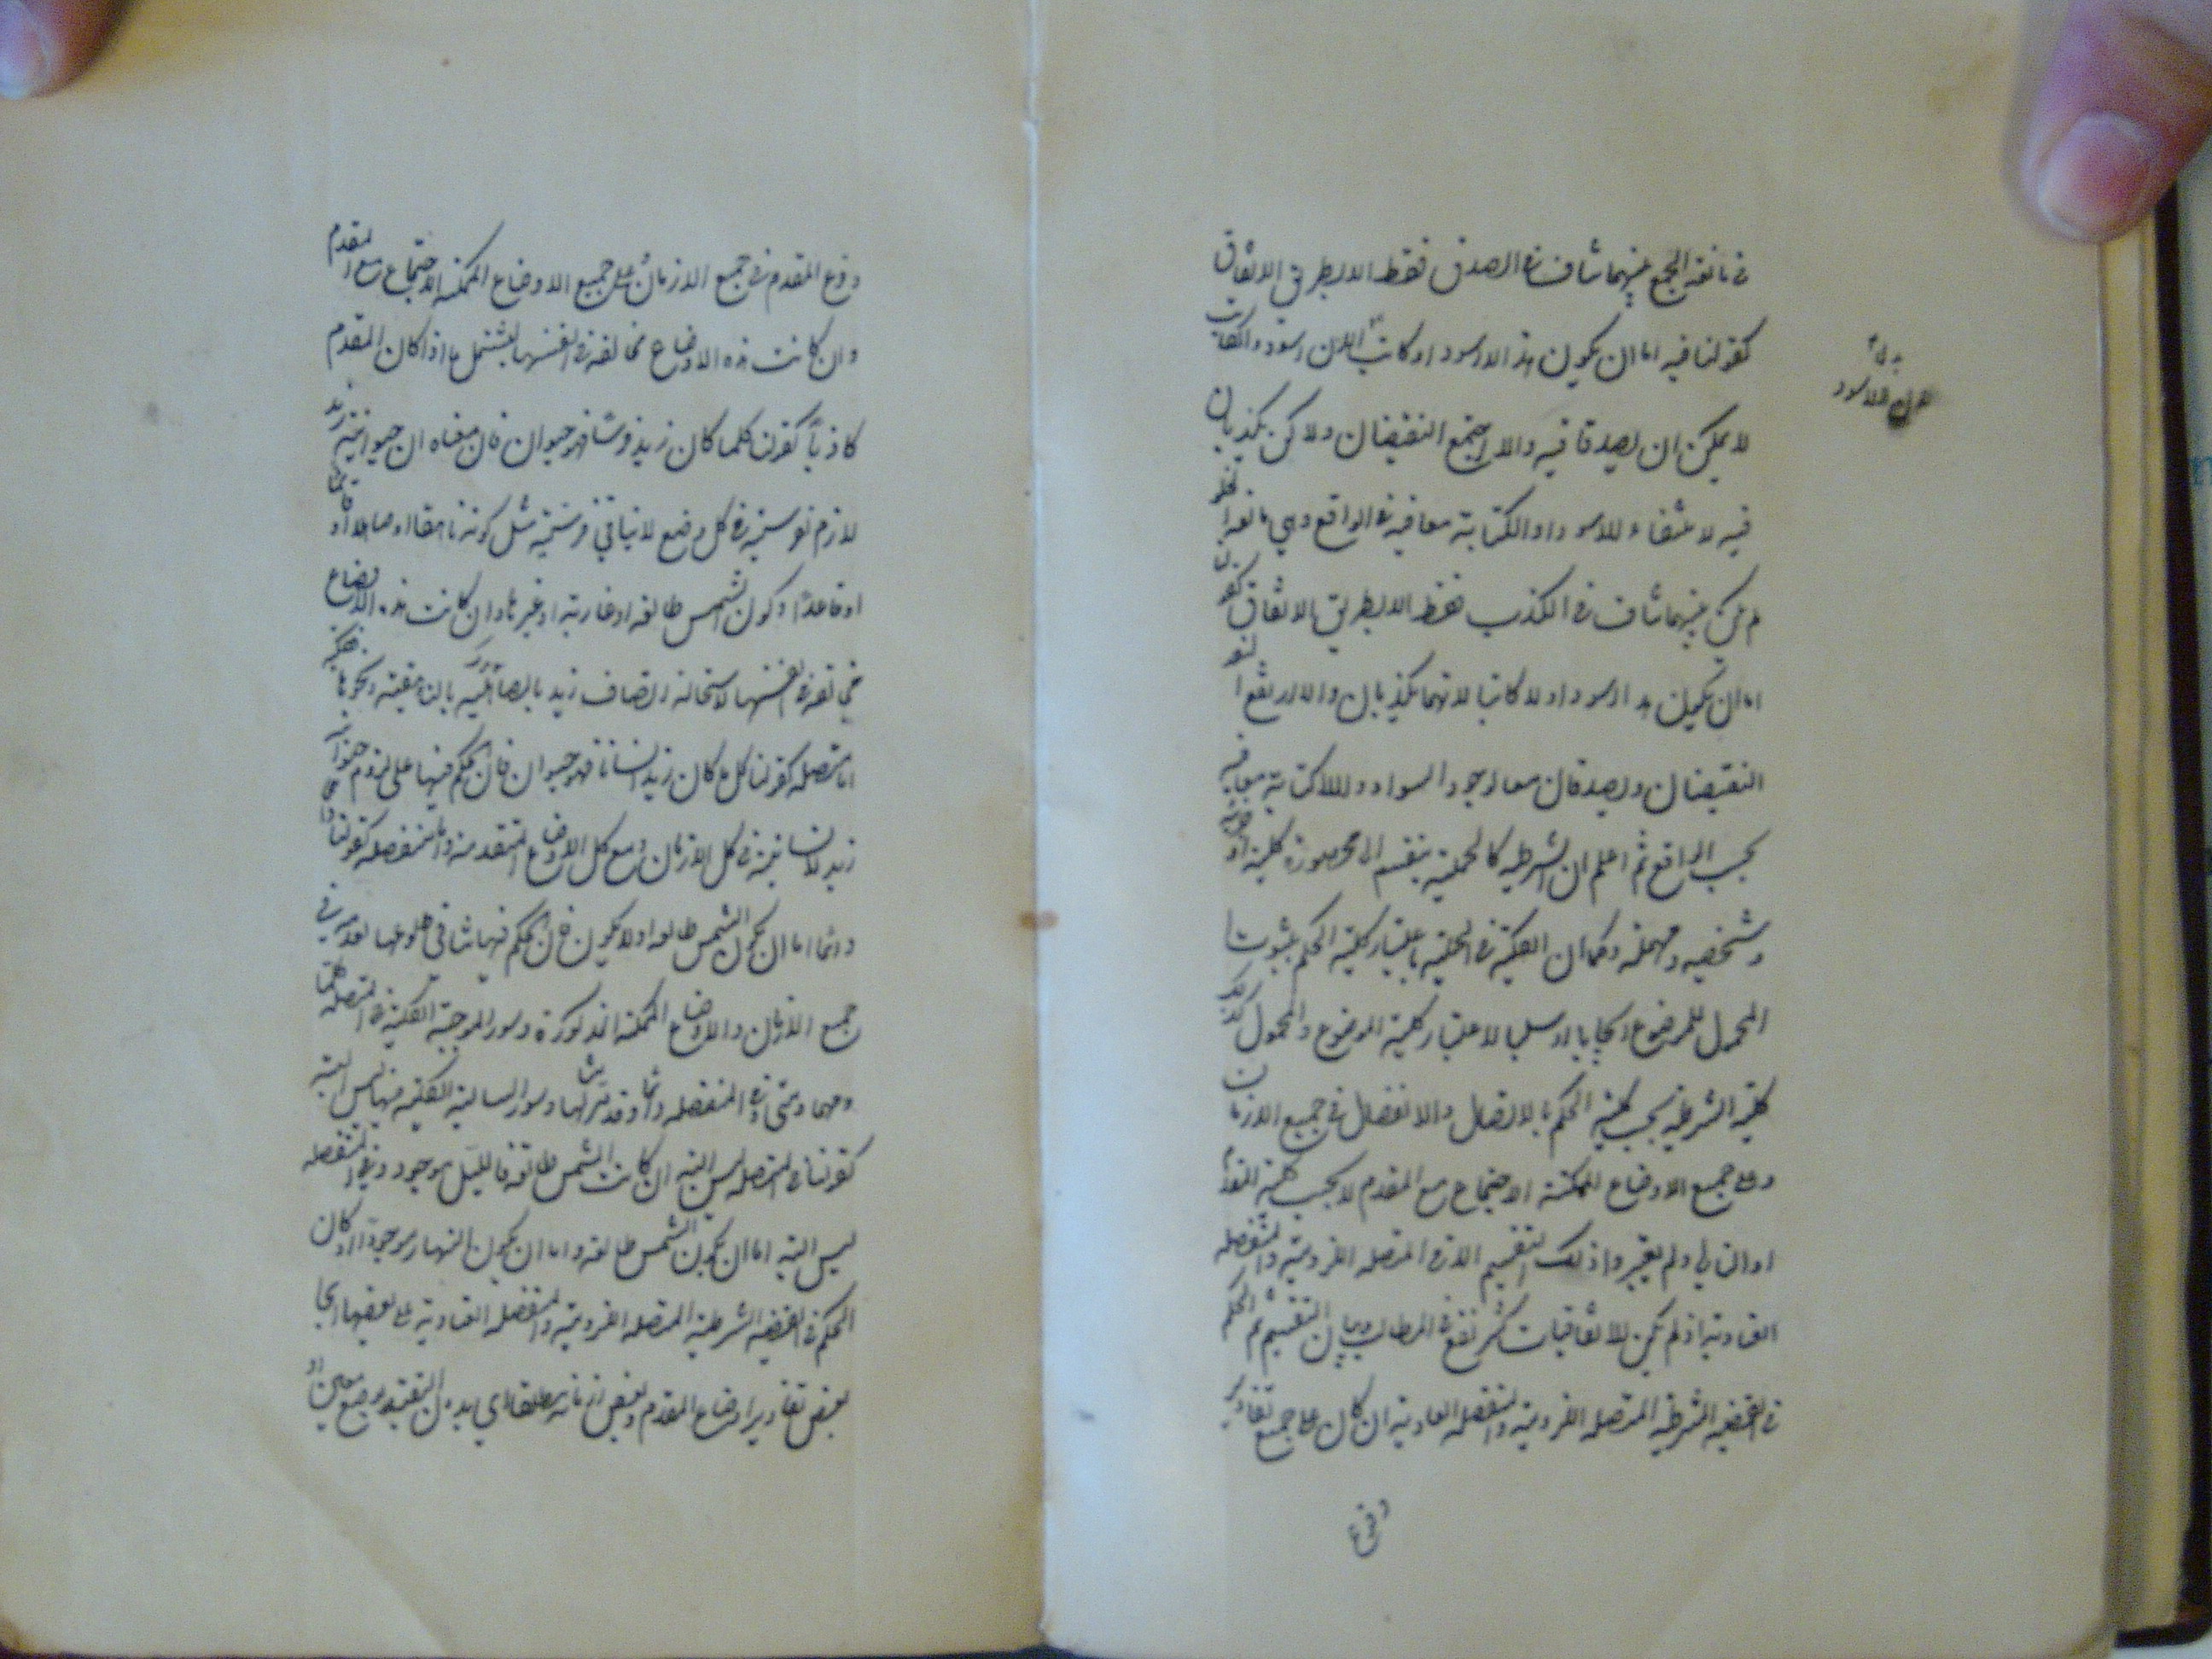 في مانعة الجمع بينهما تناف في الصدق فقط الا بطريق الاتفاق
كقولنا فيه اما ان يكون هذا الاسود او كاتبا الاسود والكتابة
لا يمكن ان يصدقا فيه والا اجتمع النقيضان ولاكن يكذبان
فيه لانتفاء اللاسود والكتابة معا فيه في الواقع وهي مانعة الخلو
لم يكن بينهما تناف في الكذب فقط الا بطريق الاتفاق كقولنا
اما ان يكون هذا اسود او لا كاتبا لانهما يكذبان والا ارتفع
النقيضان ويصدقان معا لوجود السواد واللاكتابة معا فيه
بحسب الواقع ثم اعلم ان الشرطية كالحملية ينقسم الى محصورة كلية او جزئية
وشخصية ومهملة وكما ان الكلية في الحملية باعتبار كلية الحكم بثبوت
المحمول للموضوع ايجابا او سلبا لا باعتبار كلية الموضوع والمحمول كذلك
كلية الشرطية بحسب كلية الحكم بالاتصال والانفصال في جميع الازمان
وعلى جميع الاوضاع الممكنة الاجتماع مع المقدم لا بحسب كلية المقدم
او التالي ولم يعتبروا ذلك التقسيم الا في المتصلة اللزومية والمنفصلة
العنادية اذ لم يكن للاتفاقيات كثر نفع في المطالب وبيان التقسيم ثم الحكم
في القضية الشرطية المتصلة اللزومية والمنفصلة العنادية ان كان على جميع تقادير
وقوع
وقوع المقدم في جميع الازمان على جميع الاوضاع الممكنة الاجتماع مع المقدم
وان كانت هذه الاوضاع مخالفة في انفسها ليشتمل ما اذا كان المقدم
كاذبا كقولنا كلما كان زيد فرسا فهو حيوان فان معناه ان حيوانية زيد
لازم لفرسيته في كل وضع لا ينافي فرسيته مثل كونه ناهقا او صاهلا او قائما
او قاعدا وكون الشمس طالعة او غاربة او غيرها وان كانت هذه الاوضاع
مخالفة في انفسها لاستحالة اتصاف زيد بالصاهلية بالناهقية ونحوها
اما متصلة كقولنا كلما كان زيد انسانا فهو حيوان فان الحكم فيها على لزوم حيوانية
زيد لانسانيته في كل الازمان ومع كل الاوضاع المتقدمة واما منفصلة كقولنا
دائما اما ان يكون الشمس طالعة او لا يكون فان الحكم فيها بتنافي طلوعها لعدمه في
جميع الازمان والاوضاع الممكنة المذكورة وسور الموجبة الكلية في المتصلة كلما
ومهما ومتى وفي المنفصلة دائما وقد مر مثالها وسور السالبة الكلية فيهما ليس البتة
كقولنا في المتصلة ليس البتة ان كانت الشمس طالعة فالليل موجود وفي المنفصلة
ليس البتة اما ان يكون الشمس طالعة واما ان يكون النهار موجودا او كان
الحكم في القضية الشرطية المتصلة اللزومية والمنفصلة العنادية على بعضها اي على
بعض تقادير اوضاع المقدم وبعض ازمانه مطلقا اي بدون التقييد بوضع معين او